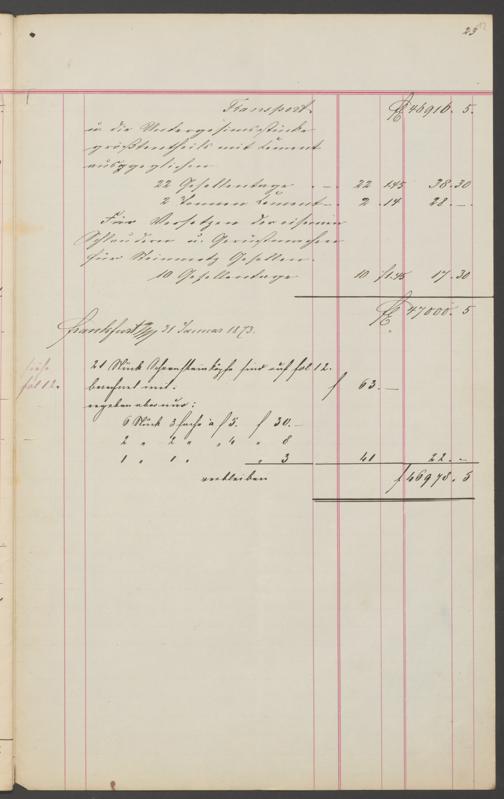 23
Transport. f 46916. 5.
u. die Untergesimsstücke
größtentheils mit Cement
ausgeglichen
22 Gesellentage . - . 22 1.45 38.30
2 Tonnen Cement - . 2 . 14 28 . - .
Für Versetzen der eisernen
Schlaudern u. Gerüstmachen
für Steinmetz Gesellen.
10 Gesellentage 10 f 1.45 17.30
f 47000. 5
Frankfurt a/M 31 Januar 1873.
siehe
fol 12.
21 Stück Schornsteinköpfe sind auf fol. 12.
berechnet mit. f 63. —
ergeben aber nur:
6 Stück 3 fache à f 5. f 30. —
2 " 2 " " 4 " 8
1 " 1 " " 3 41 22. -
verbleiben f 46978. 5